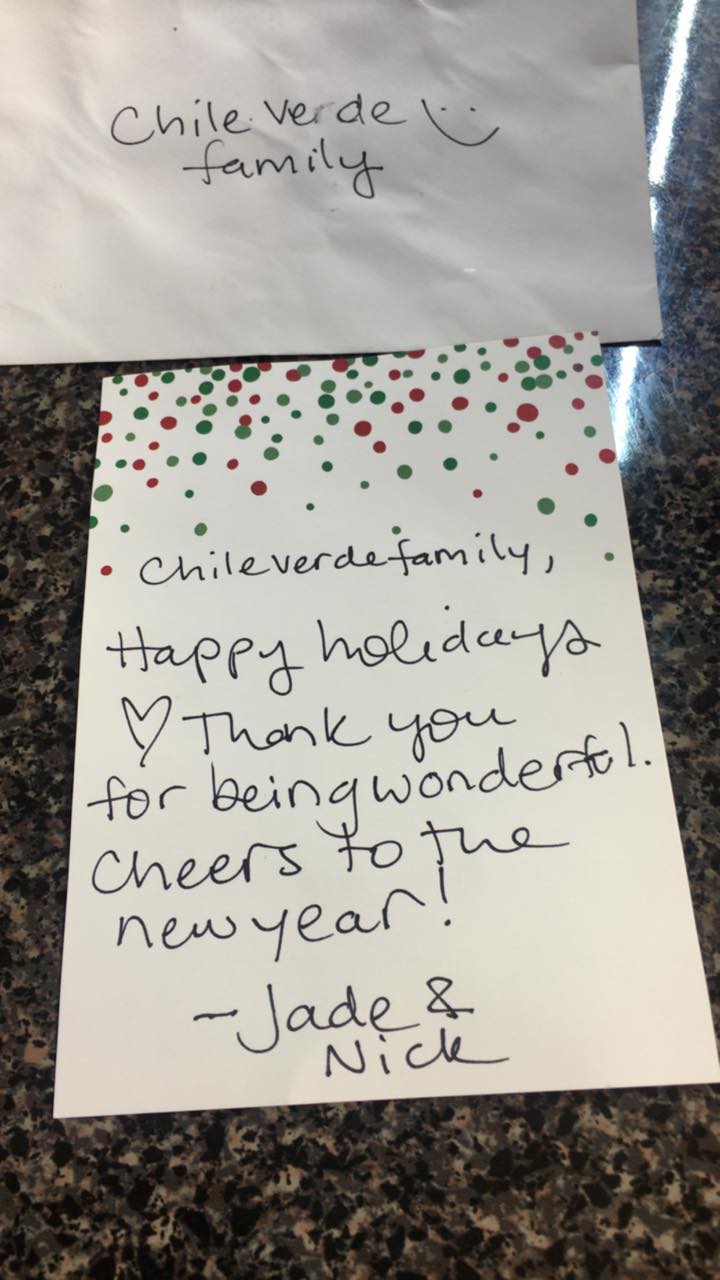 Chile Verde
family
Chile verde family,
Happy holidays
♡ Thank you
for being wonderful.
Cheers to the
new year!
-Jade &
Nick